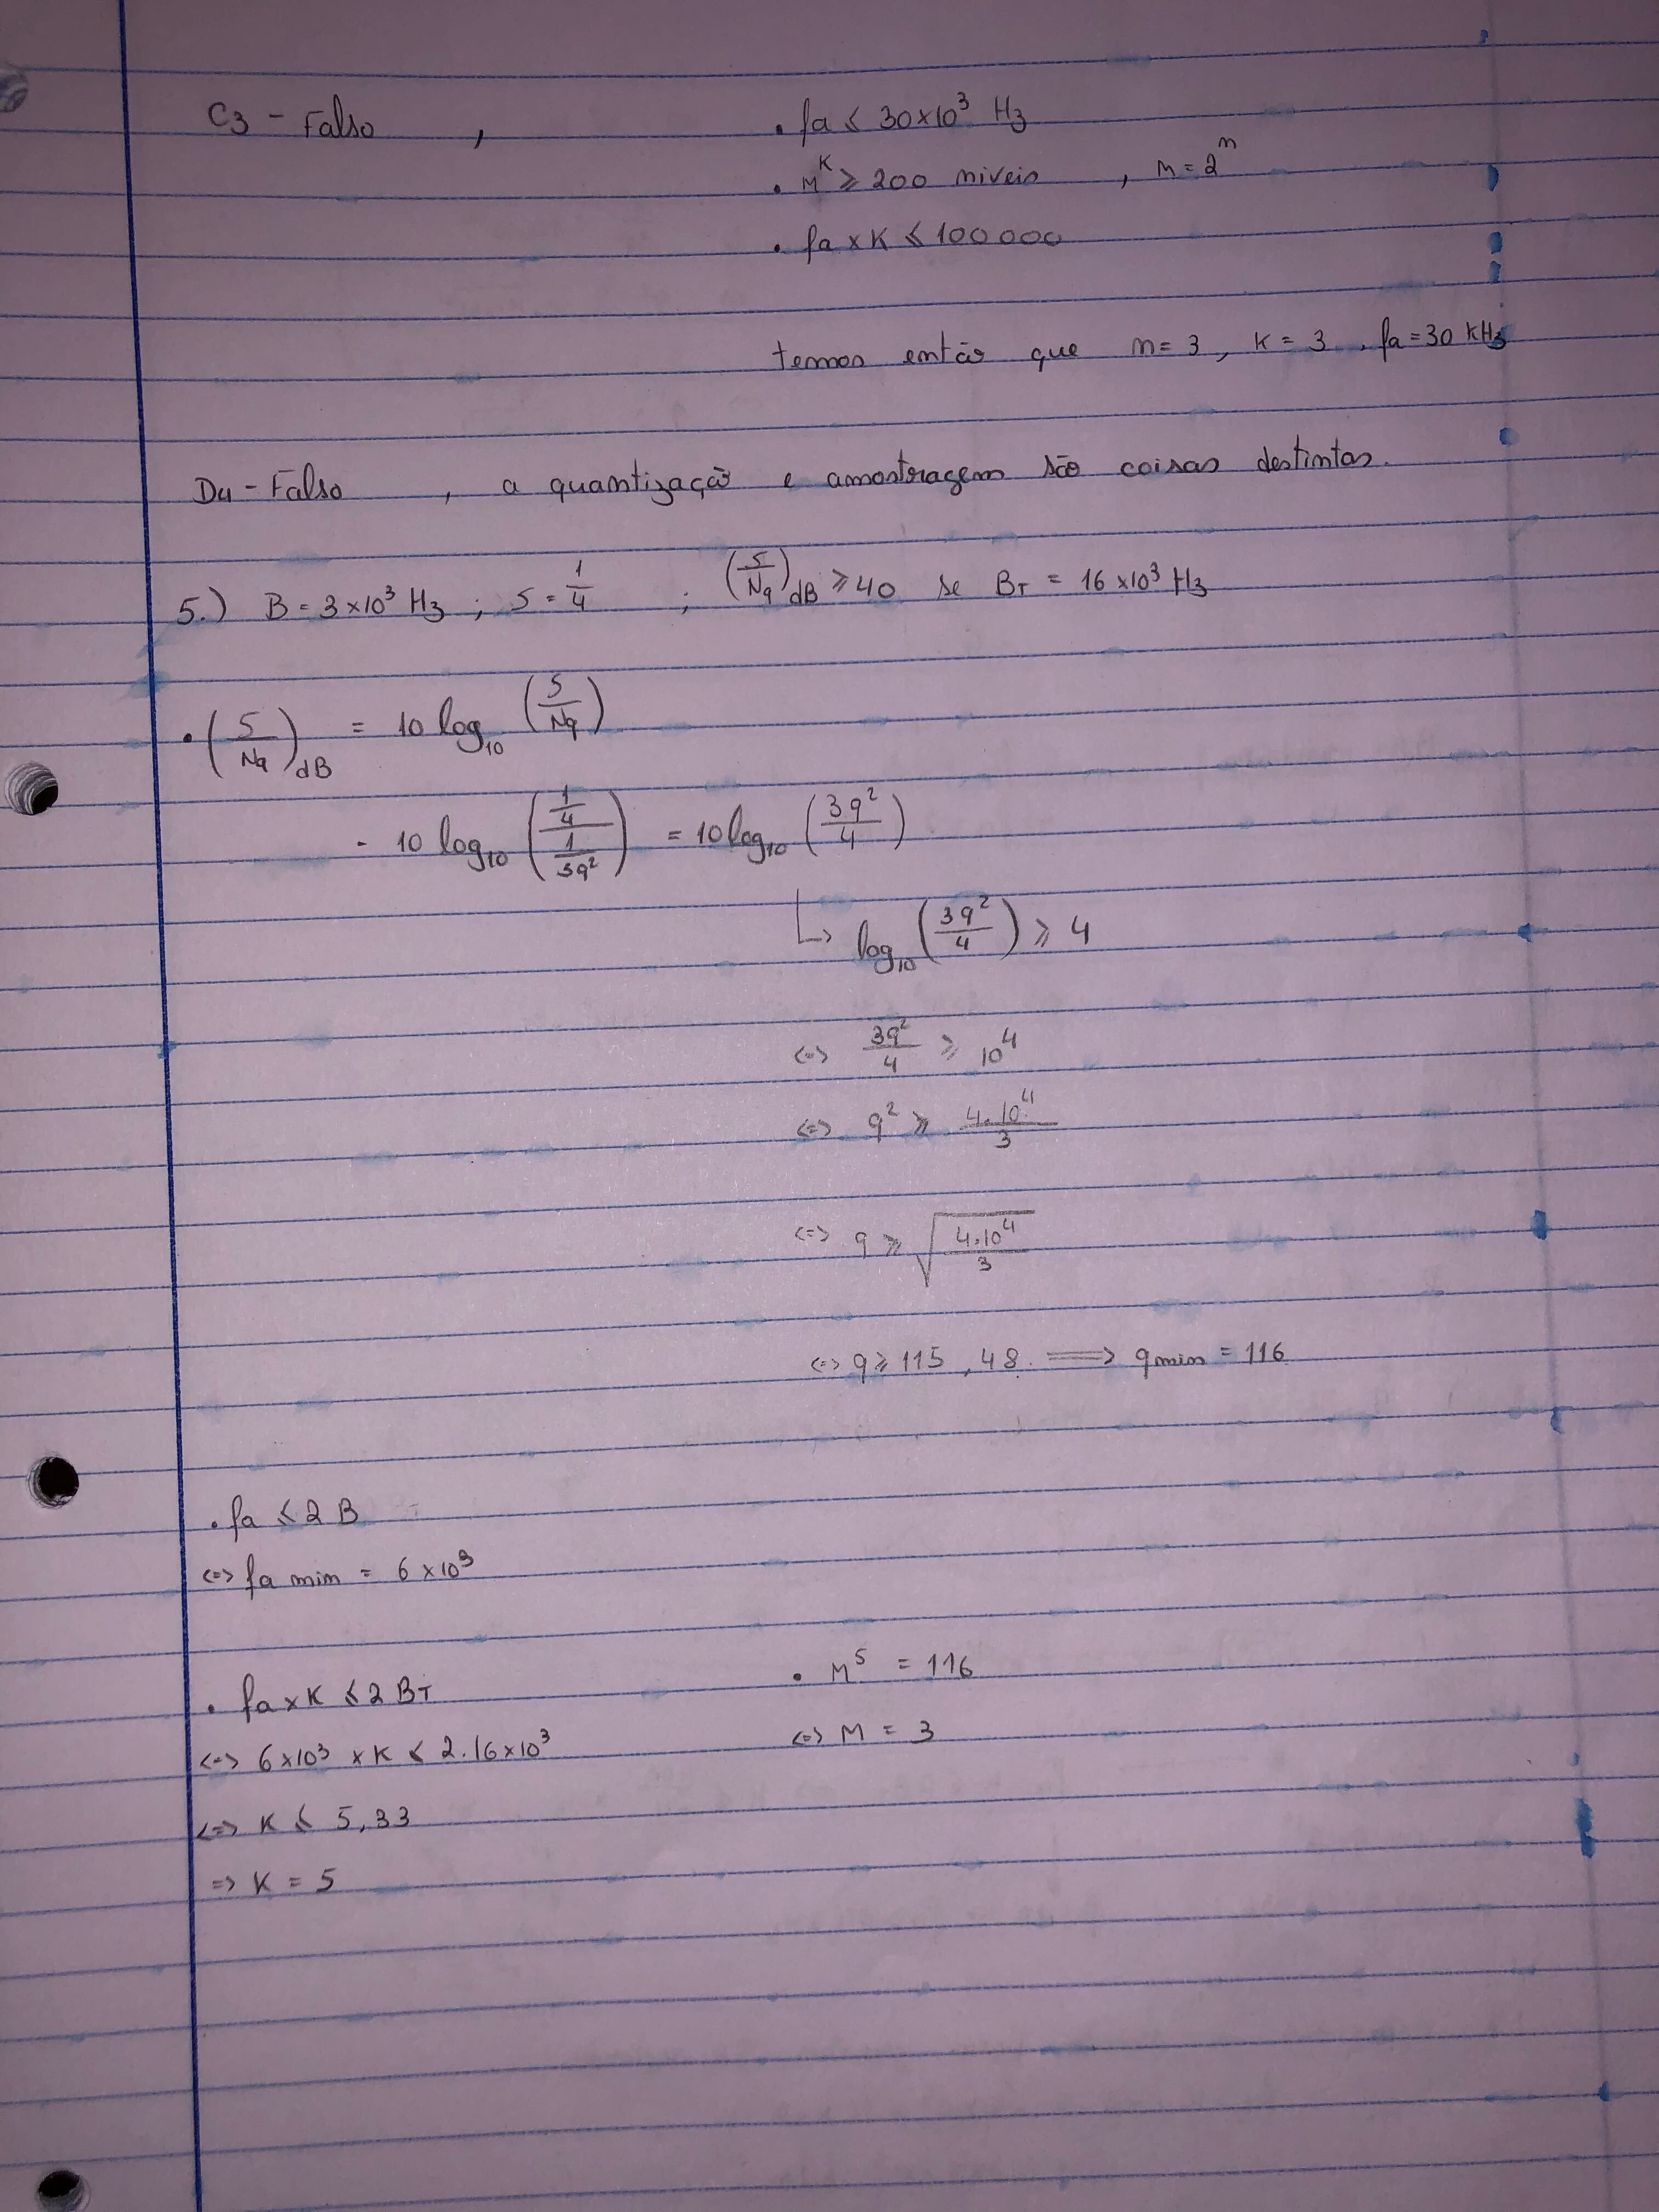 C3 - Falso , • fa ≤ 30×10³ Hz
• M^K ⩾ 200 niveis , M = 2^n
• fa × K ≤ 100 000
temos então que n = 3 , K = 3 , fa = 30 KHz
D4 - Falso , a quantização e amostragem são coisas destintas.
5.) B = 3×10³ Hz ; S = 1/4 ; (S/Nq)dB ⩾ 40 se BT = 16×10³ Hz
• (S/Nq)dB = 10 log₁₀ (S/Nq)
- 10 log₁₀ ((1/4)/(1/3q²)) = 10 log₁₀ (3q²/4)
↳ log₁₀ (3q²/4) ⩾ 4
<=> 3q²/4 ⩾ 10⁴
<=> q² ⩾ 4.10⁴/3
<=> q ⩾ √(4.10⁴/3)
<=> q ⩾ 115,48 ⟹ qmin = 116
• fa ≤ 2B
<=> fa min = 6×10³
• fa × K ≤ 2 BT
<=> 6×10³ × K ≤ 2.16×10³
<=> K ≤ 5,33
=> K = 5
• M⁵ = 116
<=> M = 3